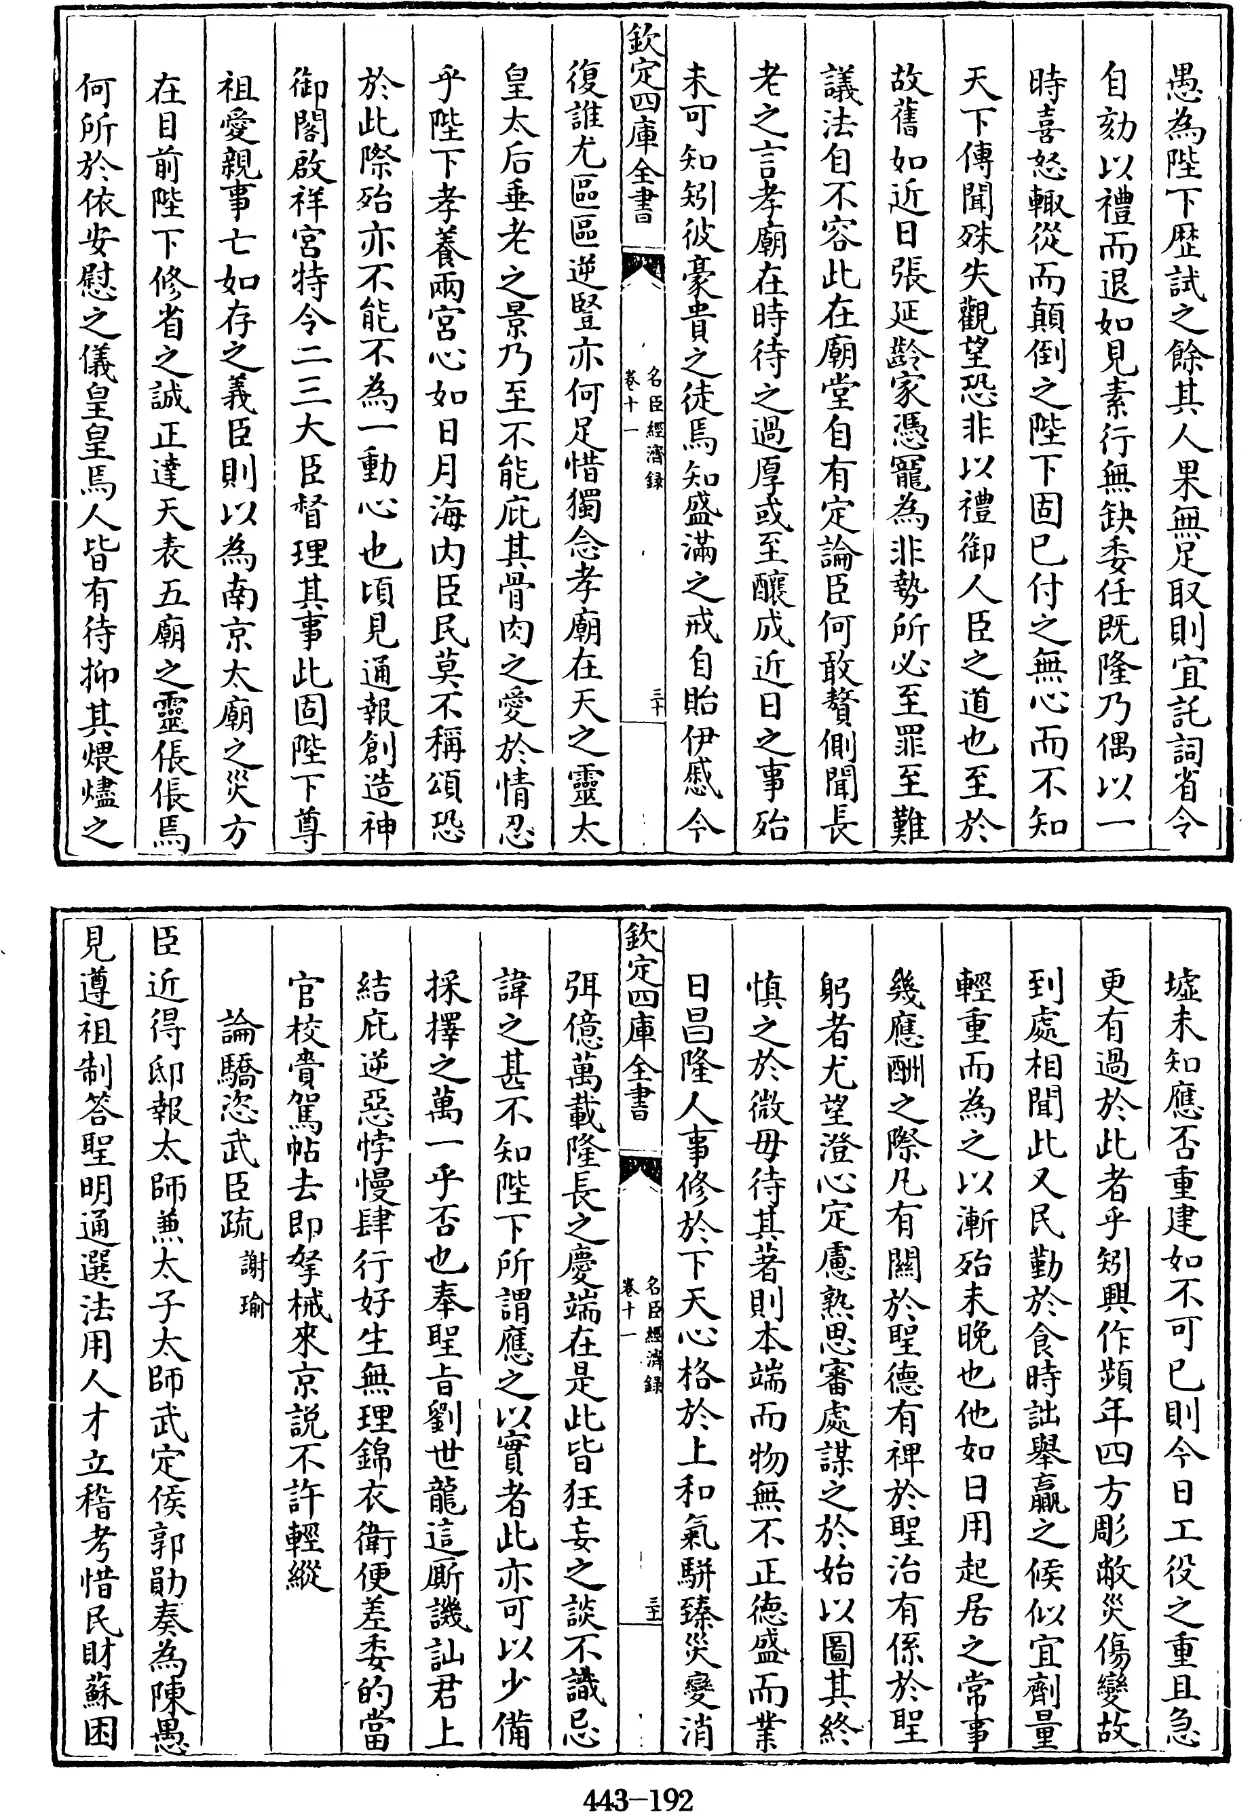 愚為陛下歴試之餘其人果無足取則宜託詞省令
自劾以禮而退如見素行無缺委任既隆乃偶以一
時喜怒輒從而顛倒之陛下固已付之無心而不知
天下傳聞殊失觀望恐非以禮御人臣之道也至於
故舊如近日張延齡家憑寵為非勢所必至罪至難
議法自不容此在廟堂自有定論臣何敢贅側聞長
老之言孝廟在時待之過厚或至釀成近日之事殆
未可知矧彼豪貴之徒焉知盛滿之戒自貽伊慼今
欽定四庫全書
名臣經濟錄
卷十一
三十
復誰尤區區逆豎亦何足惜獨念孝廟在天之靈太
皇太后垂老之景乃至不能庇其骨肉之愛於情忍
乎陛下孝養兩宮心如日月海内臣民莫不稱頌恐
於此際殆亦不能不為一動心也頃見通報創造神
御閣啟祥宮特令二三大臣督理其事此固陛下尊
祖愛親事亡如存之義臣則以為南京太廟之災方
在目前陛下修省之誠正達天表五廟之靈倀倀焉
何所於依安慰之儀皇皇焉人皆有待抑其煨燼之
墟未知應否重建如不可已則今日工役之重且急
更有過於此者乎矧興作頻年四方彫敝災傷變故
到處相聞此又民勤於食時詘舉贏之候似宜劑量
輕重而為之以漸殆未晚也他如日用起居之常事
幾應酬之際凡有關於聖德有裨於聖治有係於聖
躬者尤望澄心定慮熟思審處謀之於始以圖其終
慎之於微毋待其著則本端而物無不正德盛而業
日昌隆人事修於下天心格於上和氣駢臻災變消
欽定四庫全書
名臣經濟錄
卷十一
三十一
弭億萬載隆長之慶端在是此皆狂妄之談不識忌
諱之甚不知陛下所謂應之以實者此亦可以少備
採擇之萬一乎否也奉聖旨劉世龍這厮譏訕君上
結庇逆惡悖慢肆行好生無理錦衣衛便差委的當
官校賫駕帖去即拏械來京説不許輕縱
論驕恣武臣疏 謝瑜
臣近得邸報太師兼太子太師武定侯郭勛奏為陳愚
見遵祖制答聖明通選法用人才立稽考惜民財蘇困
443-192